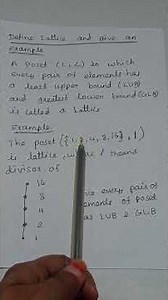 Define Lattice and give an
Example
A Poset (L,≤) in which
every pair of elements has
a least upper bound (LUB)
and greatest lower bound (GLB)
is called a Lattice
Example
The poset ({1,2,4,8,16}, |)
is lattice, where | means
divisor of
16
8
4
2
1
every pair of
elements of poset
has LUB & GLB